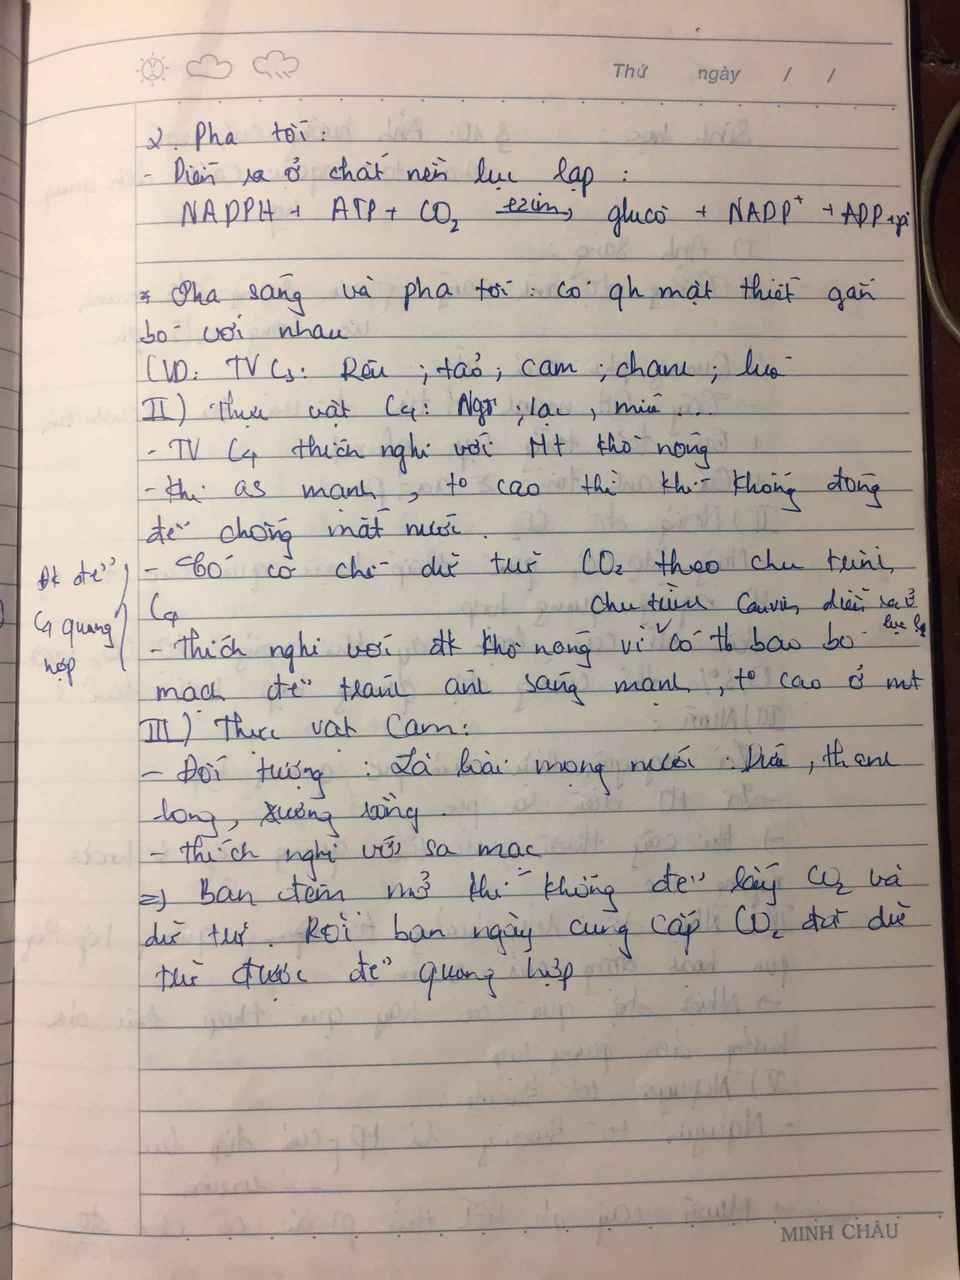 Thứ ngày / /
2. Pha tối:
- Diễn ra ở chất nền lục lạp :
NADPH + ATP + CO2 enzim→ glucô + NADP+ + ADP + pi
* Pha sáng và pha tối : có qh mật thiết gắn
bó với nhau
(VD: TV C3: Rêu ; táo ; cam ; chanh ; lúa
II) Thực vật C4: Ngô ; lạc , mía ...
- TV C4 thích nghi với Mt khô nóng
- Khi as mạnh , to cao thì khí khổng đóng
để chống mất nước .
- Có cơ chế dữ trữ CO2 theo chu trình
C4 chu trình Canvin diễn ra ở
lục lạp
Đk để
C4 quang
hợp
- Thích nghi với đk khô nóng vì có tb bao bó
mạch để tránh ánh sáng mạnh , to cao ở mt
III) Thực vật Cam:
- Đối tượng : Là loài mọng nước : Dứa , thanh
long , xương rồng .
- thích nghi với sa mạc
=> Ban đêm mở khí khổng để lấy CO2 và
dữ trữ . Rồi ban ngày cung cấp CO2 đã dữ
trữ được để quang hợp
MINH CHÂU